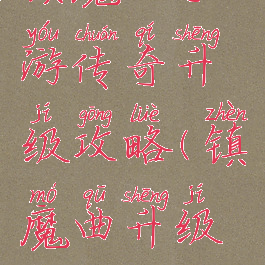 yóu chuán qí shēng
游传奇升
jí gōng lüè zhèn
级攻略(镇
mó qū shēng jí
魔曲升级